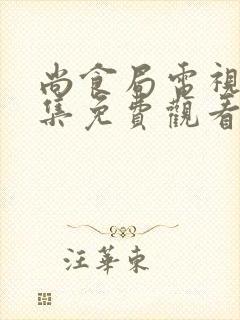 尚食局電視
集免費觀看
汪華東